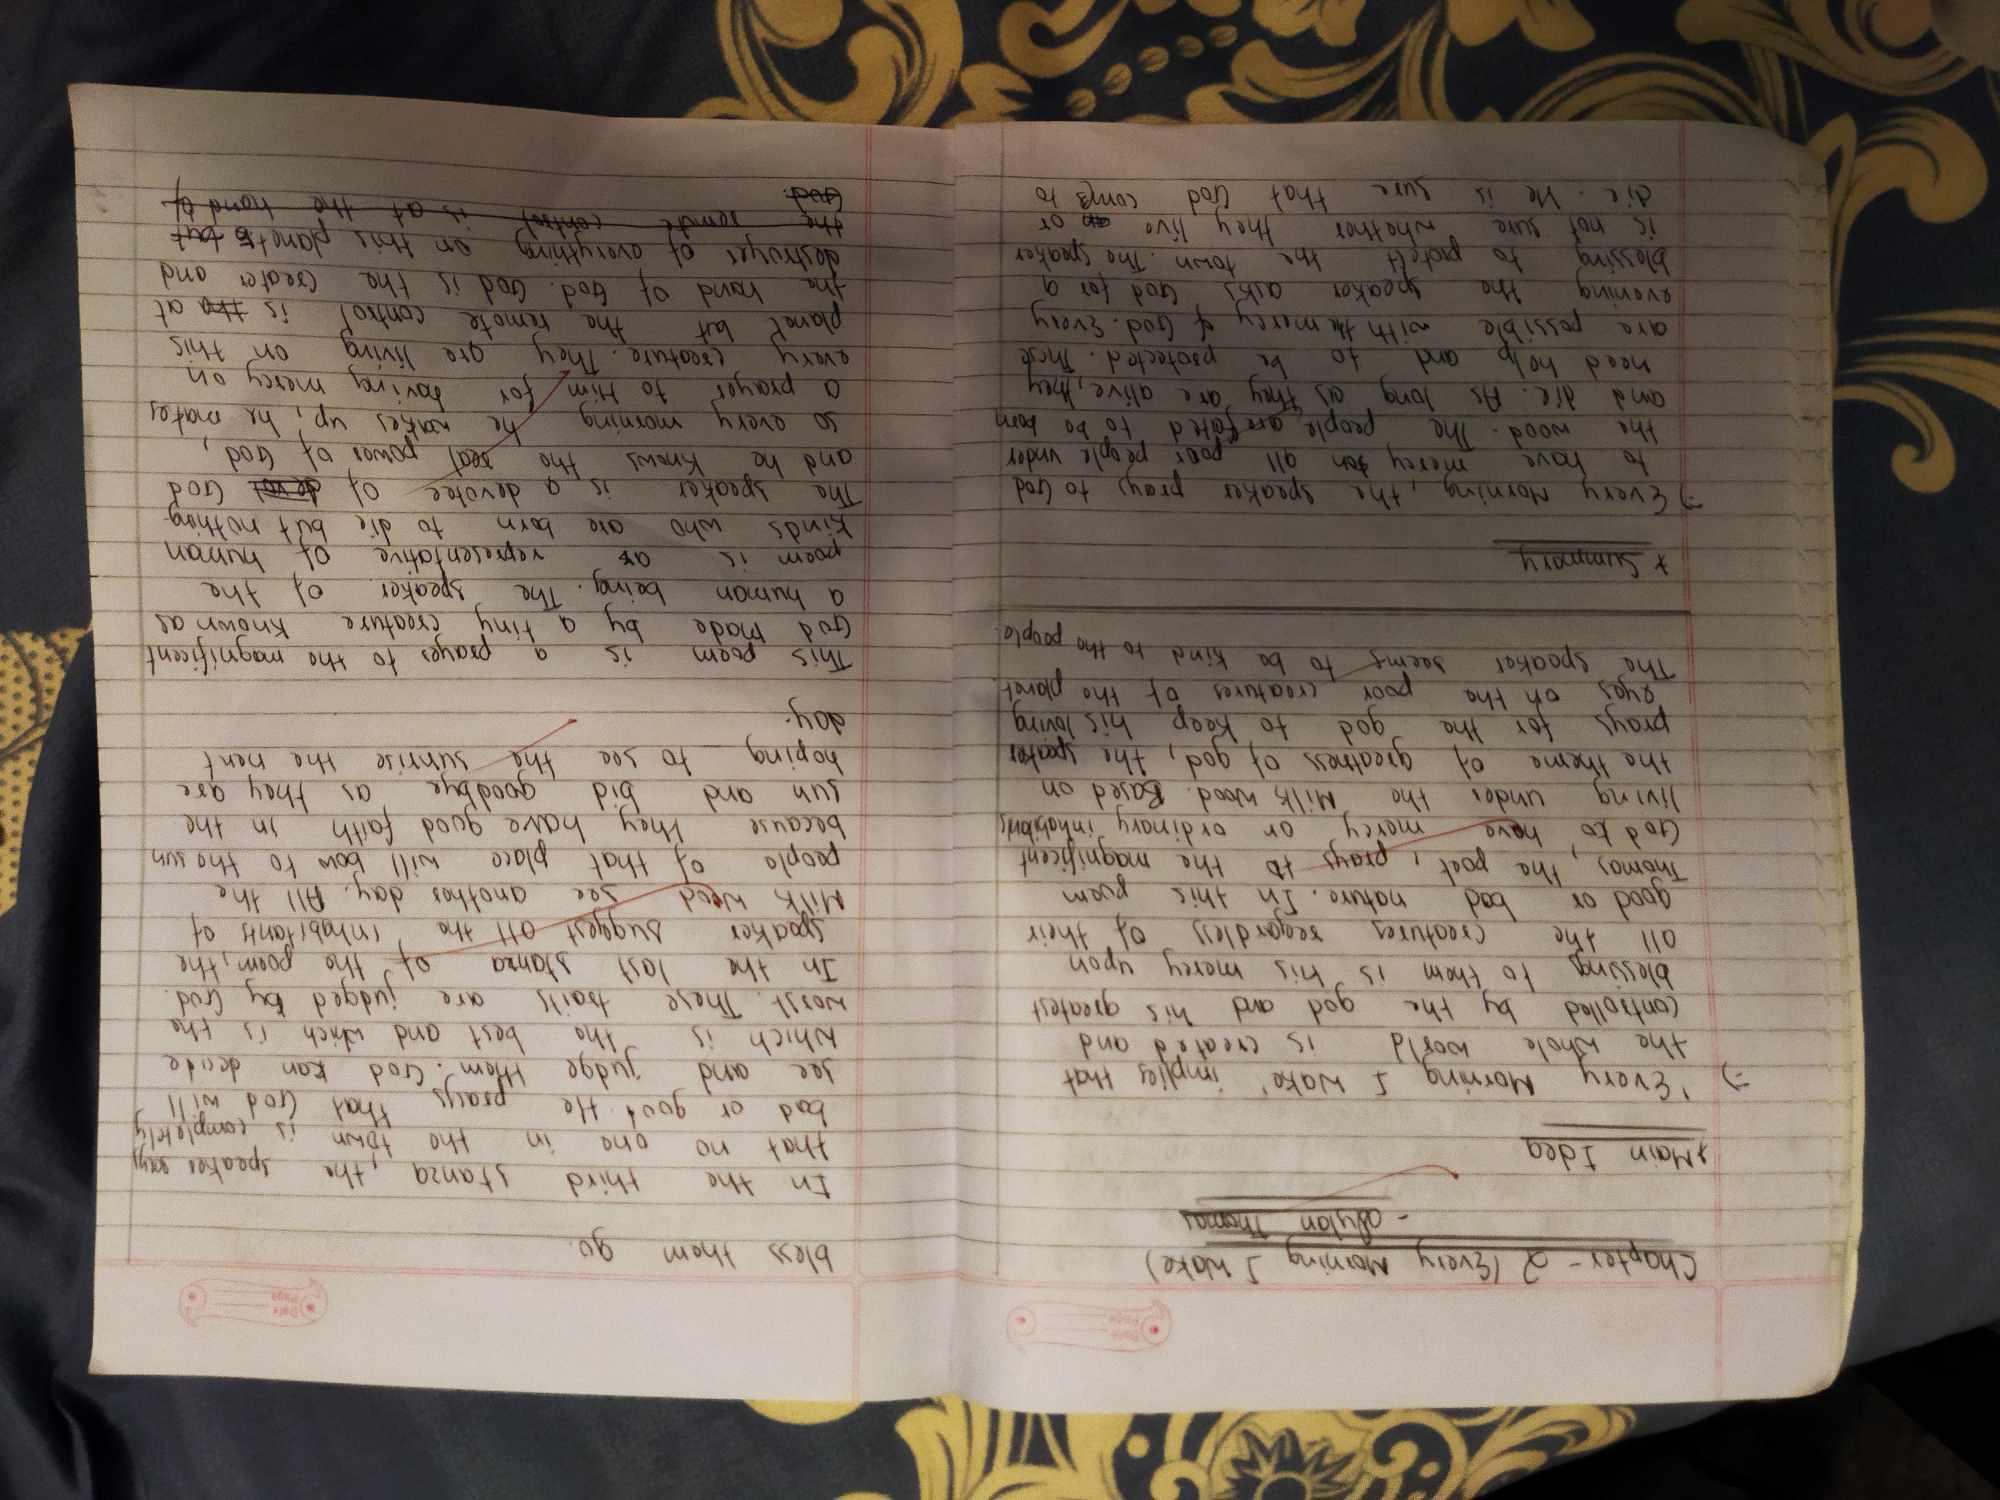 Date
Page
Chapter - 2 (Every Morning I Wake)
- Dylan Thomas
* Main Idea
⇒ 'Every Morning I Wake' implies that
the whole world is created and
controlled by the god and his greatest
blessing to them is his mercy upon
all the creatures regardless of their
good or bad nature. In this poem
Thomas, the poet, prays to the magnificent
God to have mercy or ordinary inhabitants
living under the Milk Wood. Based on
the theme of greatness of god, the speaker
prays for the god to keep his loving
eyes on the poor creatures of the planet.
The speaker seems to be kind to the people.
* Summary
⇒ Every Morning, the speaker prays to God
to have mercy on all poor people under
the wood. The people are fated to be born
and die. As long as they are alive, they
need help and to be protected. These
are possible with the mercy of God. Every
evening the speaker asks God for a
blessing to protect the town. The speaker
is not sure whether they live or
die. He is sure that God comes to
Date
Page
bless them go.
In the third stanza, the speaker says
that no one in the town is completely
bad or good He prays that God will
see and judge them. God kan decide
which is the best and which is the
worst. These traits are judged by God.
In the last stanza of the poem, the
speaker suggest all the inhabitants of
Milk Wood see another day. All the
people of that place will bow to the sun
because they have good faith in the
sun and bid goodbye as they are
hoping to see the sunrise the next
day.
This poem is a prayer to the magnificent
God made by a tiny creature known as
a human being. The speaker of the
poem is a representative of human
kinds who are born to die but nothing
The speaker is a devotee of God
and he knows the real power of God,
so every morning he wakes up, he makes
a prayer to Him for having mercy on
every creature. They are living on this
planet but the remote control is the at
the hand of God. God is the creater and
destroyer of everything on this planet but
the remote control is at the hand of
God.